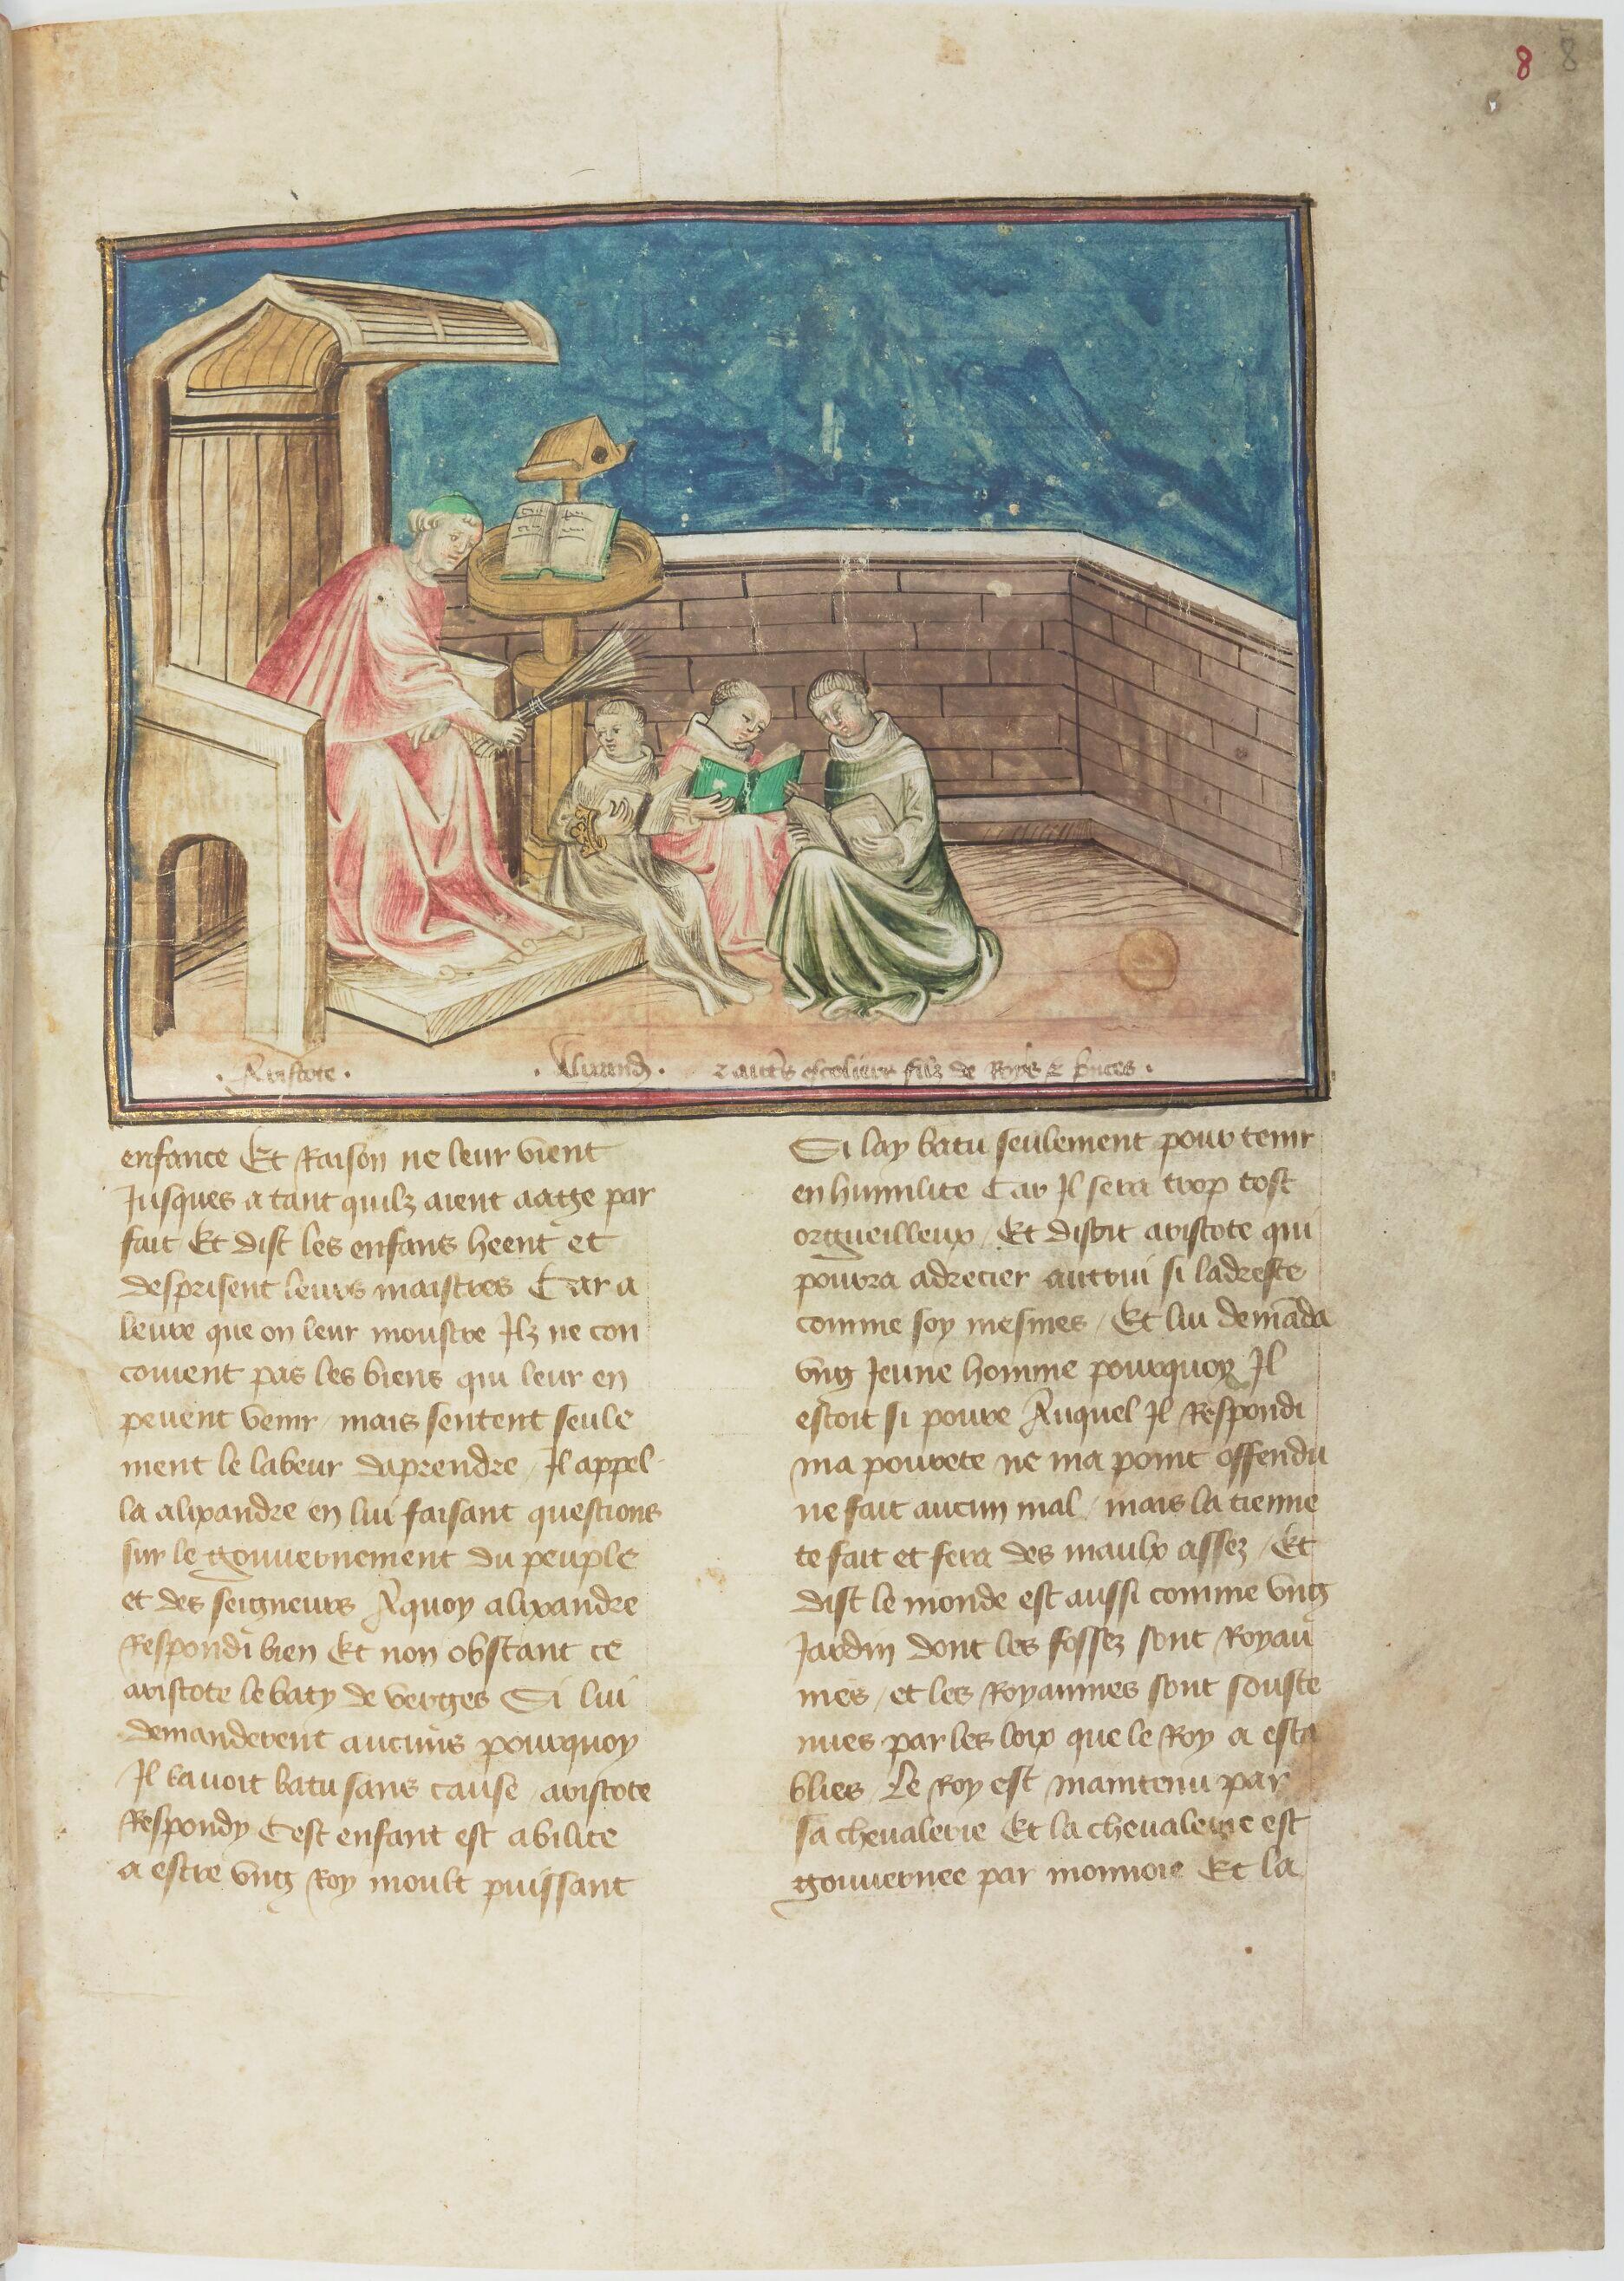 8 8
. Aristote .
. Alixand̄ . & autr̄s escoliers filz de Roys & p̄nces .
enfance Et Raison ne leur vient
Jusques a tant quilz aient aage par
fait Et dist les enfans heent et
desprisent leurs maistres Car a
leure que on leur monstre Ilz ne con
coivent pas les biens qui leur en
pevent venir / mais sentent seule
ment le labeur daprendre / Il appel-
la alixandre en lui faisant questions
sur le gouvernement du peuple
et des seigneurs Aquoy alixandre
Respondi bien Et non obstant ce
aristote le baty de verges Si lui
demanderent aucuns pourquoy
Il lavoit batu sans cause / aristote
Respondy Cest enfant est abilite
a estre ung Roy moult puissant
Si lay batu seulement pour tenir
en humilite Car Il sera trop tost
orgueilleux / Et disoit aristote qui
pourra adrecier autrui si ladresse
comme soy mesmes / Et lui demāda
ung Jeune homme pourquoy Il
estoit si povre Auquel Il Respondi
ma povrete ne ma point offendu
ne fait aucun mal / mais la tienne
te fait et fera des maulx assez / Et
dist le monde est aussi comme ung
Jardin dont les fossez sont Royau
mes / et les Royaumes sont souste
nues par les loix que le Roy a esta
blies / Le Roy est maintenu par
sa chevalerie Et la chevalerie est
gouvernee par monnoie Et la